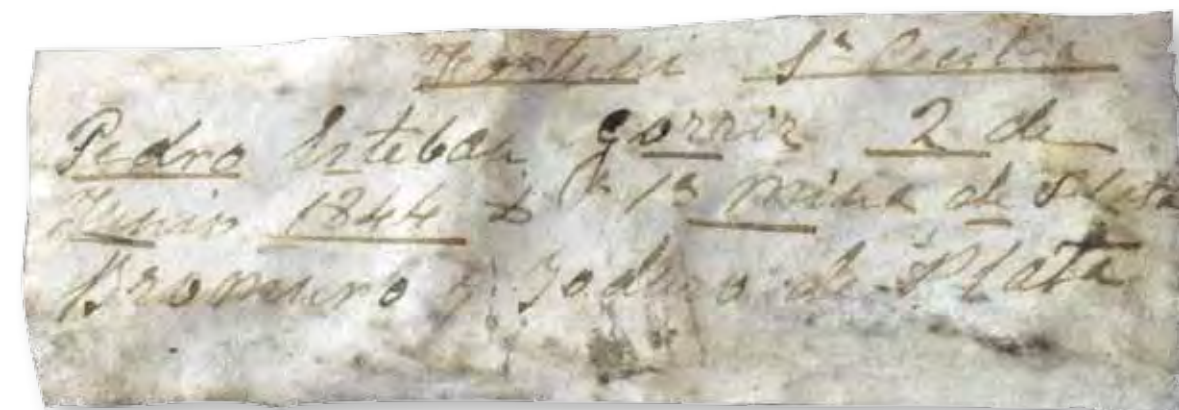 Sª Cecilia
Pedro Esteban Gorriz 2 de
Junio 1844 1ª mina de Plata
Bromuro y Ioduro de Plata